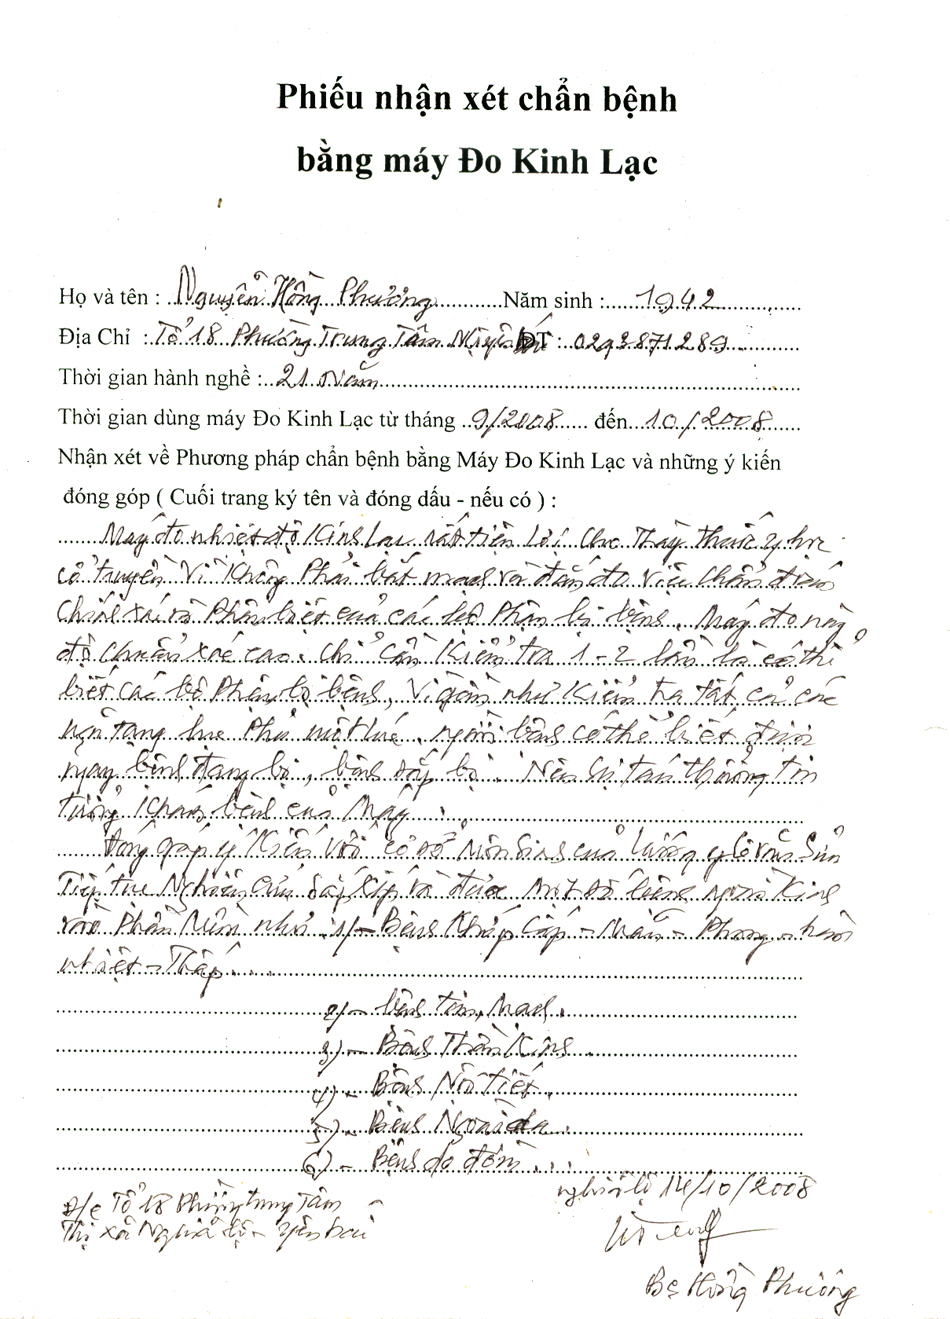 Phiếu nhận xét chẩn bệnh
bằng máy Đo Kinh Lạc
Họ và tên : Nguyễn Hồng Phương Năm sinh : 1942
Địa Chỉ : Tổ 18 Phường Trung Tâm ĐT : 0293871289
Thời gian hành nghề : 21 Năm
Thời gian dùng máy Đo Kinh Lạc từ tháng 9/2008 đến 10/2008
Nhận xét về Phương pháp chẩn bệnh bằng Máy Đo Kinh Lạc và những ý kiến
đóng góp ( Cuối trang ký tên và đóng dấu - nếu có ) :
Máy đo nhiệt độ Kinh Lạc rất tiện Lợi cho Thầy thuốc y học
cổ truyền Vì Không Phải bắt mạch và đắn đo việc chẩn đoán
chính xác và Phân biệt của các bộ Phận bị bệnh. Máy đo này
độ chuẩn xác cao. chỉ cần Kiểm tra 1-2 lần là có thể
biết các bộ Phận bị bệnh, Vì gần như Kiểm tra tất cả các
tạng lục Phủ một lúc. người bệnh có thể biết được
ngay bệnh đang bị, bệnh sắp bị. Nên thường tin
tưởng Khám bệnh của Máy.
Đóng góp ý Kiến của Lương y Lê Văn Sửu
Tiếp tục Nghiên cứu
vào Phần Mềm như 1)- Bệnh Khớp Cấp - Mãn - Phong - hàn
nhiệt - Thấp
2)- bệnh tim Mạch.
3)- Bệnh Thần Kinh.
4)- Bệnh Nội Tiết.
5)- Bệnh Ngoài da.
6)- Bệnh do đờm...
nghĩa lộ 14/10/2008
Đ/c Tổ 18 Phường trung Tâm
Thị xã Nghĩa lộ - Yên bái
Bs Hồng Phương